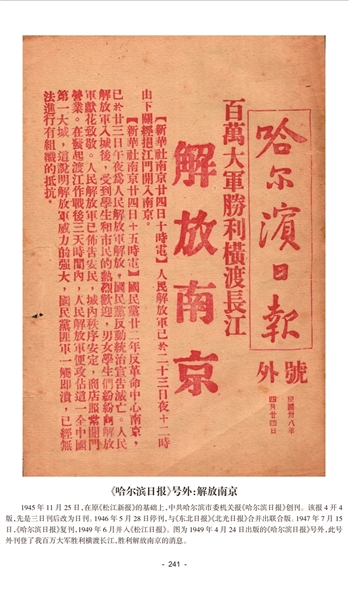 哈尔濱日報
號外
民國卅八年
四月廿四日
百萬大軍勝利橫渡長江
解放南京
【新華社南京廿四日十時電】人民解放軍已於二十三日夜十二時
由下關經挹江門開入南京。
【新華社南京廿四日十五時電】國民黨廿二年反革命中心南京，
已於廿三日午夜為人民解放軍解放，國民黨反動統治宣告滅亡。人民
解放軍入城後，受到學生和市民的熱烈歡迎，男女學生們紛紛向解放
軍獻花致敬。人民解放軍已佈告安民，城內秩序安定，商店照常開門
營業。在發起渡江作戰後三天時間內，人民解放軍便攻佔這一全中國
第一大城，這說明解放軍威力的強大，國民黨匪軍一觸即潰，已經無
法進行有組織的抵抗。
《哈尔滨日报》号外:解放南京
1945 年 11 月 25 日,在原《松江新报》的基础上,中共哈尔滨市委机关报《哈尔滨日报》创刊。该报 4 开 4
版,先是三日刊后改为日刊。1946 年 5 月 28 日停刊,与《东北日报》《北光日报》合并出联合版。1947 年 7 月 15
日,《哈尔滨日报》复刊,1949 年 6 月并入《松江日报》。图为 1949 年 4 月 24 日出版的《哈尔滨日报》号外,此号
外刊登了我百万大军胜利横渡长江,胜利解放南京的消息。
- 241 -